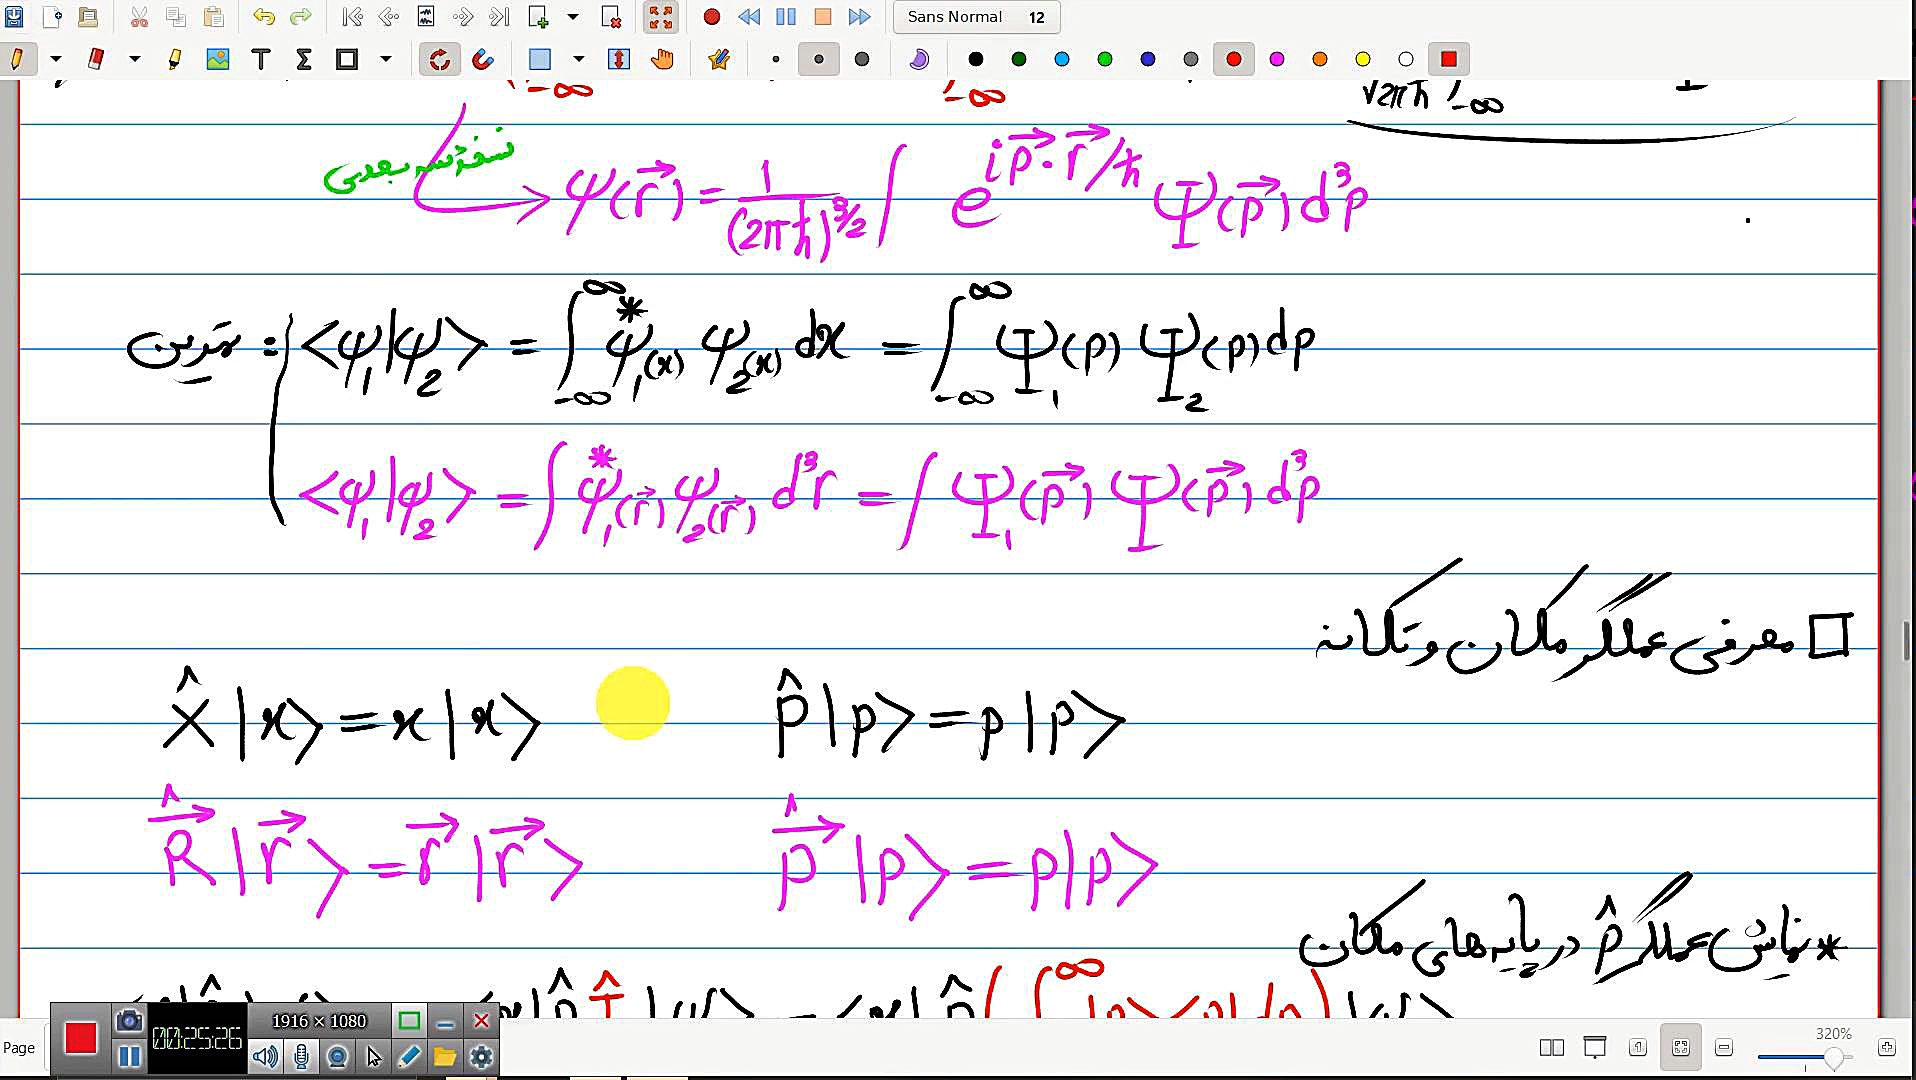 Sans Normal 12
-∞ -∞ √2πħ -∞
نسخهٔ سه بعدی
ψ(r⃗) = 1/(2πħ)^3/2 ∫ e^{i p⃗·r⃗/ħ} Ψ(p⃗) d³p
تمرین : <ψ₁|ψ₂> = ∫_{-∞}^{∞} ψ₁*(x) ψ₂(x) dx = ∫_{-∞}^{∞} Ψ₁(p) Ψ₂(p) dp
<ψ₁|ψ₂> = ∫ ψ₁*(r⃗) ψ₂(r⃗) d³r = ∫ Ψ₁(p⃗) Ψ(p⃗) d³p
□ معرفی عملگر مکان و تکانه
X̂|x> = x|x> P̂|p> = p|p>
R⃗̂|r⃗> = r⃗|r⃗> P⃗̂|p> = p|p>
* نمایش عملگر p̂ در پایه های مکان
00:25:26
1916 × 1080
Page
320%